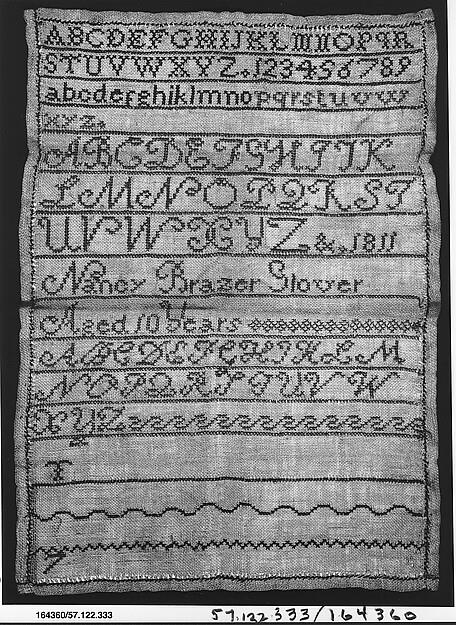 ABCDEFGHIJKLMNOPQR
STUVWXYZ.123456789
abcdefghiklmnopqrstuvw
xyz.
ABCDEFGHIJK
LMNOPQRST
UVWXYZ.&.1811
Nancy Brazer Slover
Aged 10 Years
ABCDEFGHIKLM
NOPQRSTUVW
XYZ
T
7
164360/57.122.333
57.122.333/164360